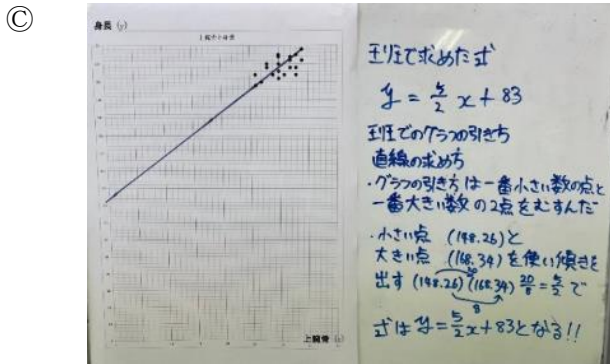 Ⓒ
身長 (y)
上腕骨と身長
上腕骨 (x)
班で求めた式
y = 5/2 x + 83
班でのグラフの引き方
直線の求め方
・グラフの引き方は一番小さい数の点と
一番大きい数の2点をむすんだ
・小さい点 (148.26)と
大きい点 (168.34)を使い傾きを
出す (148.26)(168.34) 20/8 = 5/2 で
20
8
式は y = 5/2 x + 83となる!!